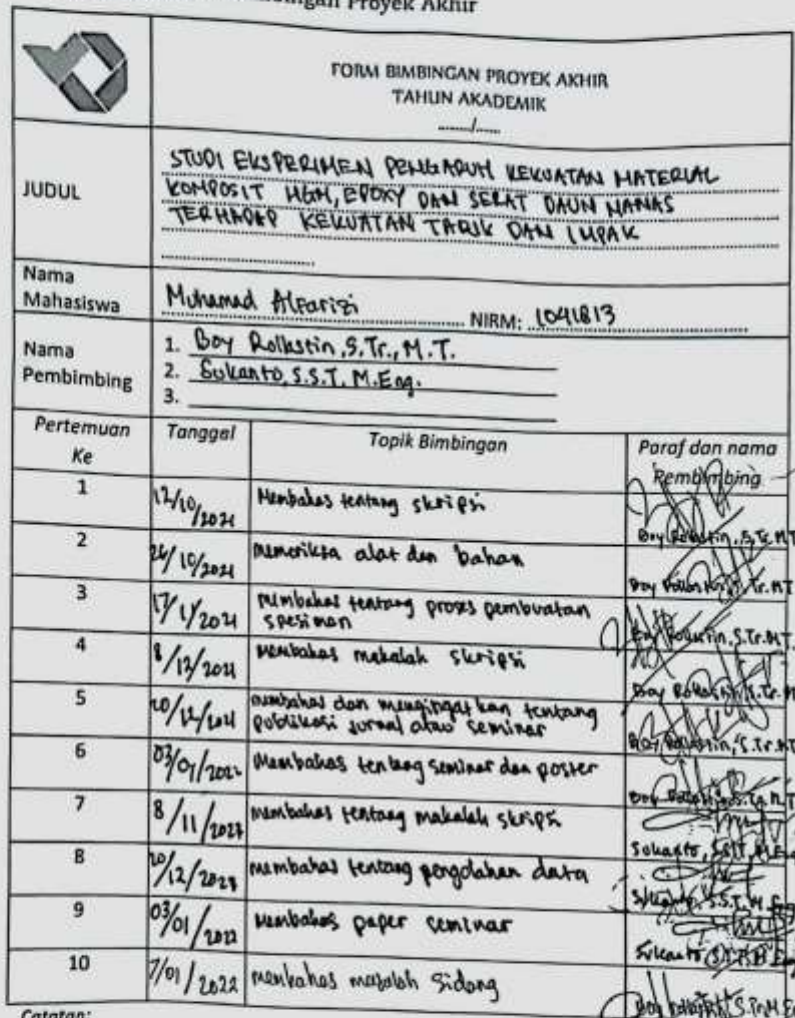 Bimbingan Proyek Akhir
FORM BIMBINGAN PROYEK AKHIR
TAHUN AKADEMIK
......../......
JUDUL
STUDI EKSPERIMEN PENGARUH KEKUATAN MATERIAL
KOMPOSIT HGM, EPOXY DAN SERAT DAUN NANAS
TERHADAP KEKUATAN TARIK DAN IMPAK
Nama
Mahasiswa
Muhamad Alfarizi NIRM: 1041813
Nama
Pembimbing
1. Boy Rollastin, S.Tr., M.T.
2. Sukanto, S.S.T, M.Eng.
3.
Pertemuan
Ke
Tanggal
Topik Bimbingan
Paraf dan nama
Pembimbing
1
12/10/2021
Membahas tentang skripsi
Boy Rollastin, S.Tr.M.T
2
26/10/2021
memeriksa alat dan bahan
Boy Rollastin, S.Tr.M.T
3
membahas tentang proses pembuatan
spesimen
Boy Rollastin, S.Tr.M.T.
4
8/12/2021
Membahas makalah skripsi
Boy Rollastin, S.Tr.M.T
5
20/12/2021
membahas dan mengingatkan tentang
publikasi jurnal atau seminar
Boy Rollastin, S.Tr.M.T
6
03/01/2022
Membahas tentang seminar dan poster
Boy Rollastin, S.Tr.M.T
7
8/11/2021
membahas tentang makalah skripsi
Sukanto, S.ST, M.Eng
8
20/12/2021
membahas tentang pengolahan data
Sukanto, S.S.T, M.Eng
9
03/01/2022
Membahas paper seminar
Sukanto, S.S.T, M.Eng
10
7/01/2022
membahas masalah Sidang
Catatan: